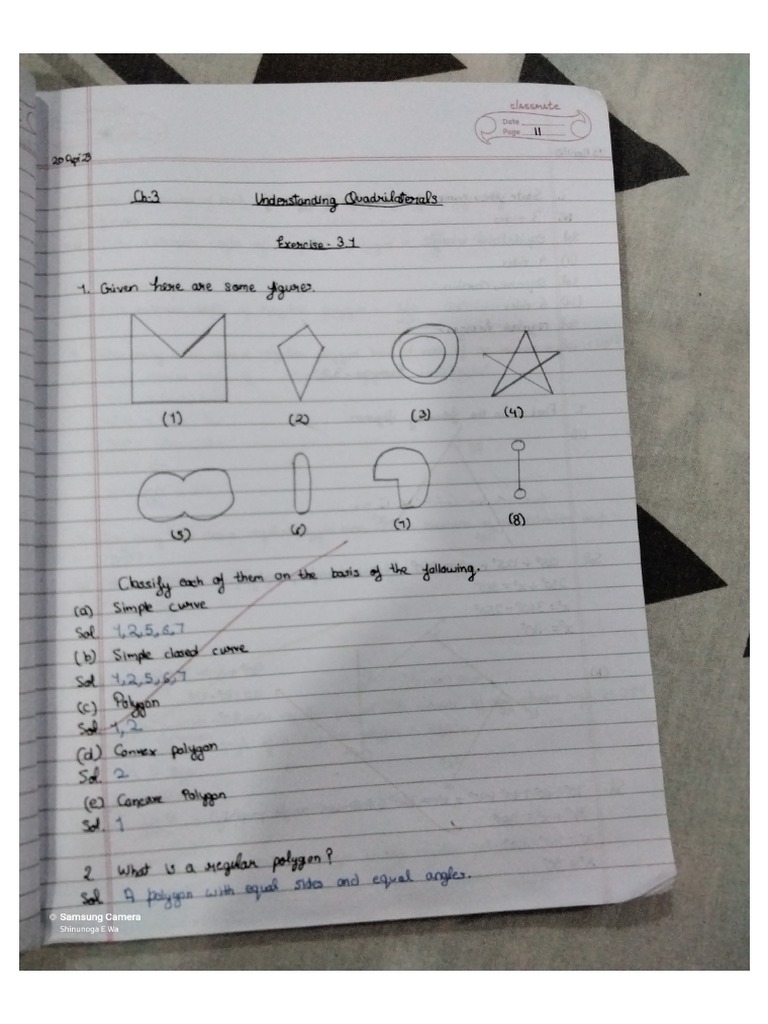 classmate
Date
Page 11
20 Apr 23
Ch-3 Understanding Quadrilaterals
Exercise - 3.1
1. Given here are some figures.
(1) (2) (3) (4)
(5) (6) (7) (8)
Classify each of them on the basis of the following.
(a) Simple curve
Sol. 1,2,5,6,7
(b) Simple closed curve
Sol. 1,2,5,6,7
(c) Polygon
Sol. 1,2
(d) Convex polygon
Sol. 2
(e) Concave Polygon
Sol. 1
2. What is a regular polygon?
Sol A polygon with equal sides and equal angles.
Samsung Camera
Shinunoga E Wa